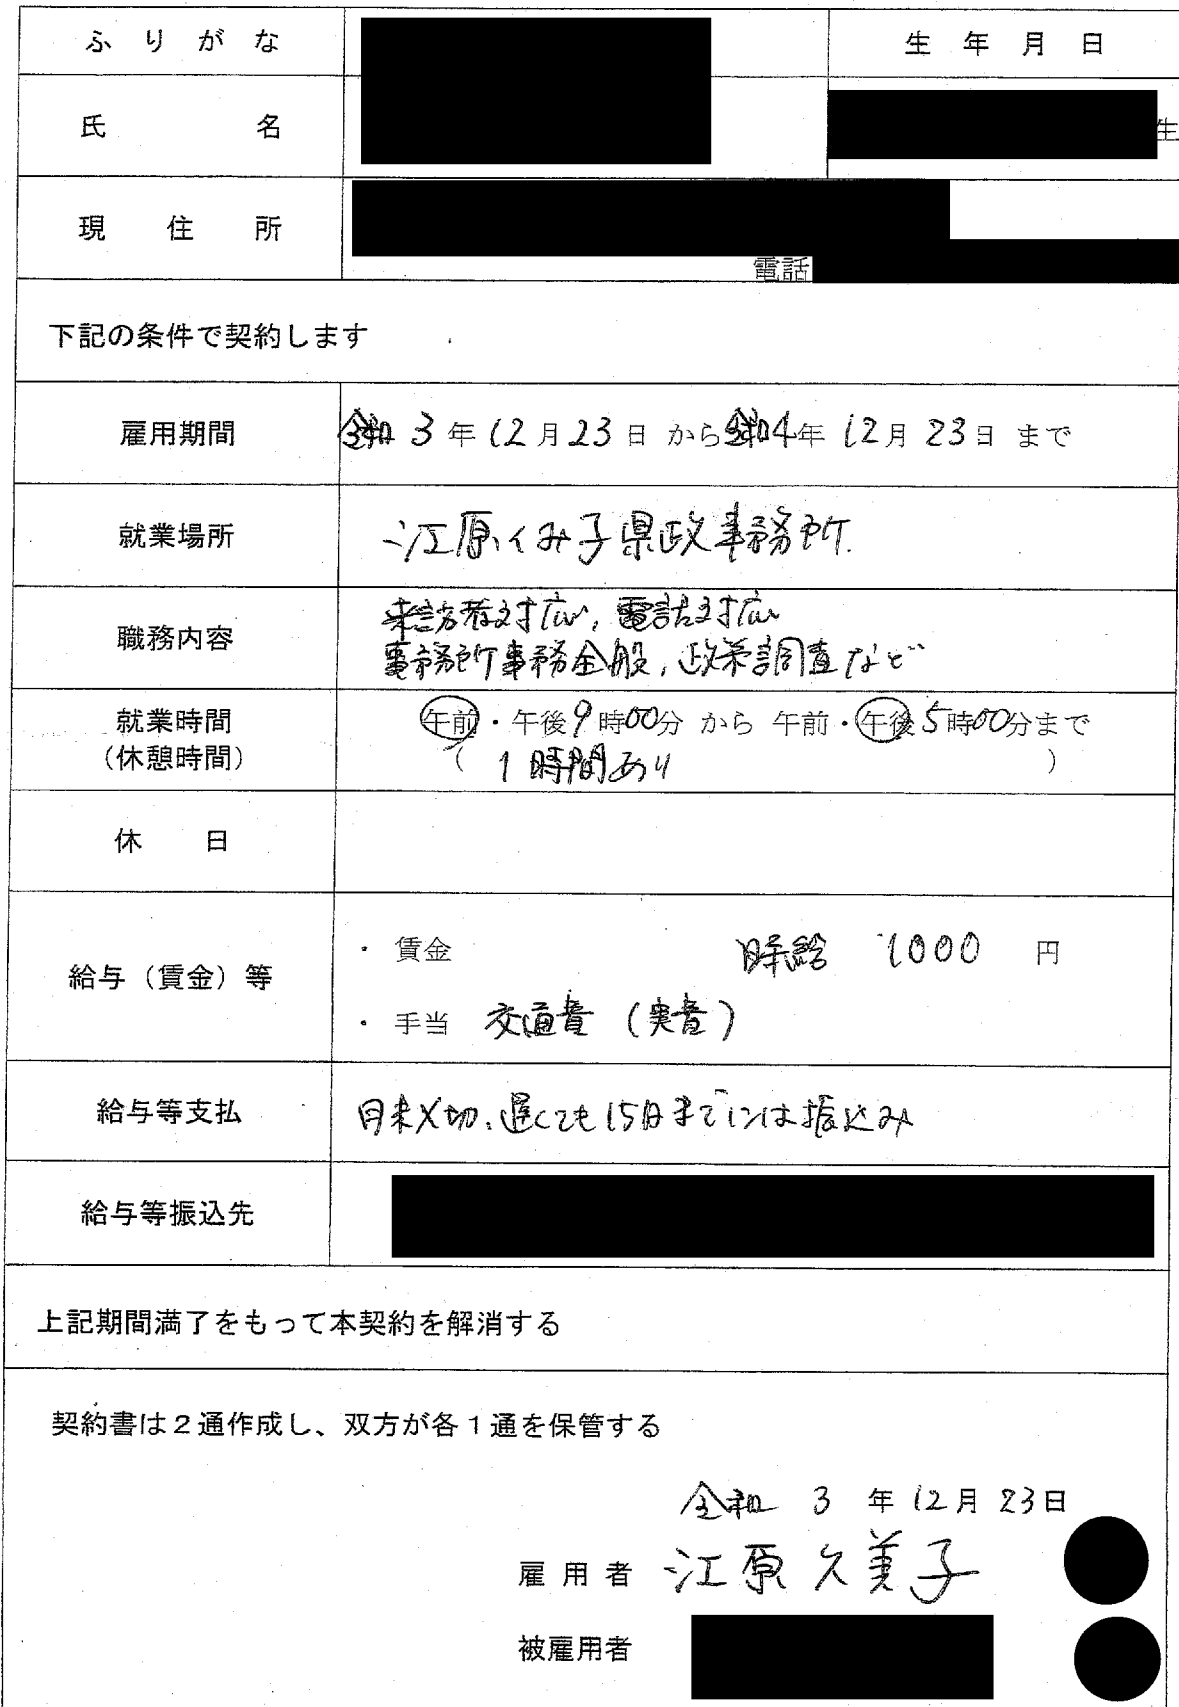 ふりがな
生年月日
氏名
生
現住所
電話
下記の条件で契約します
雇用期間 令和3年12月23日 から 令和4年12月23日 まで
就業場所 江原くみ子県政事務所.
職務内容 来訪者対応, 電話対応
事務所事務全般, 政策調査など
就業時間 午前・午後9時00分 から 午前・午後5時00分まで
(休憩時間) ( 1時間あり )
休日
給与(賃金)等
・賃金 時給 1000 円
・手当 交通費 (実費)
給与等支払 月末〆切、遅くても15日までには振込み
給与等振込先
上記期間満了をもって本契約を解消する
契約書は2通作成し、双方が各1通を保管する
令和 3 年 12月 23日
雇用者 江原久美子
被雇用者